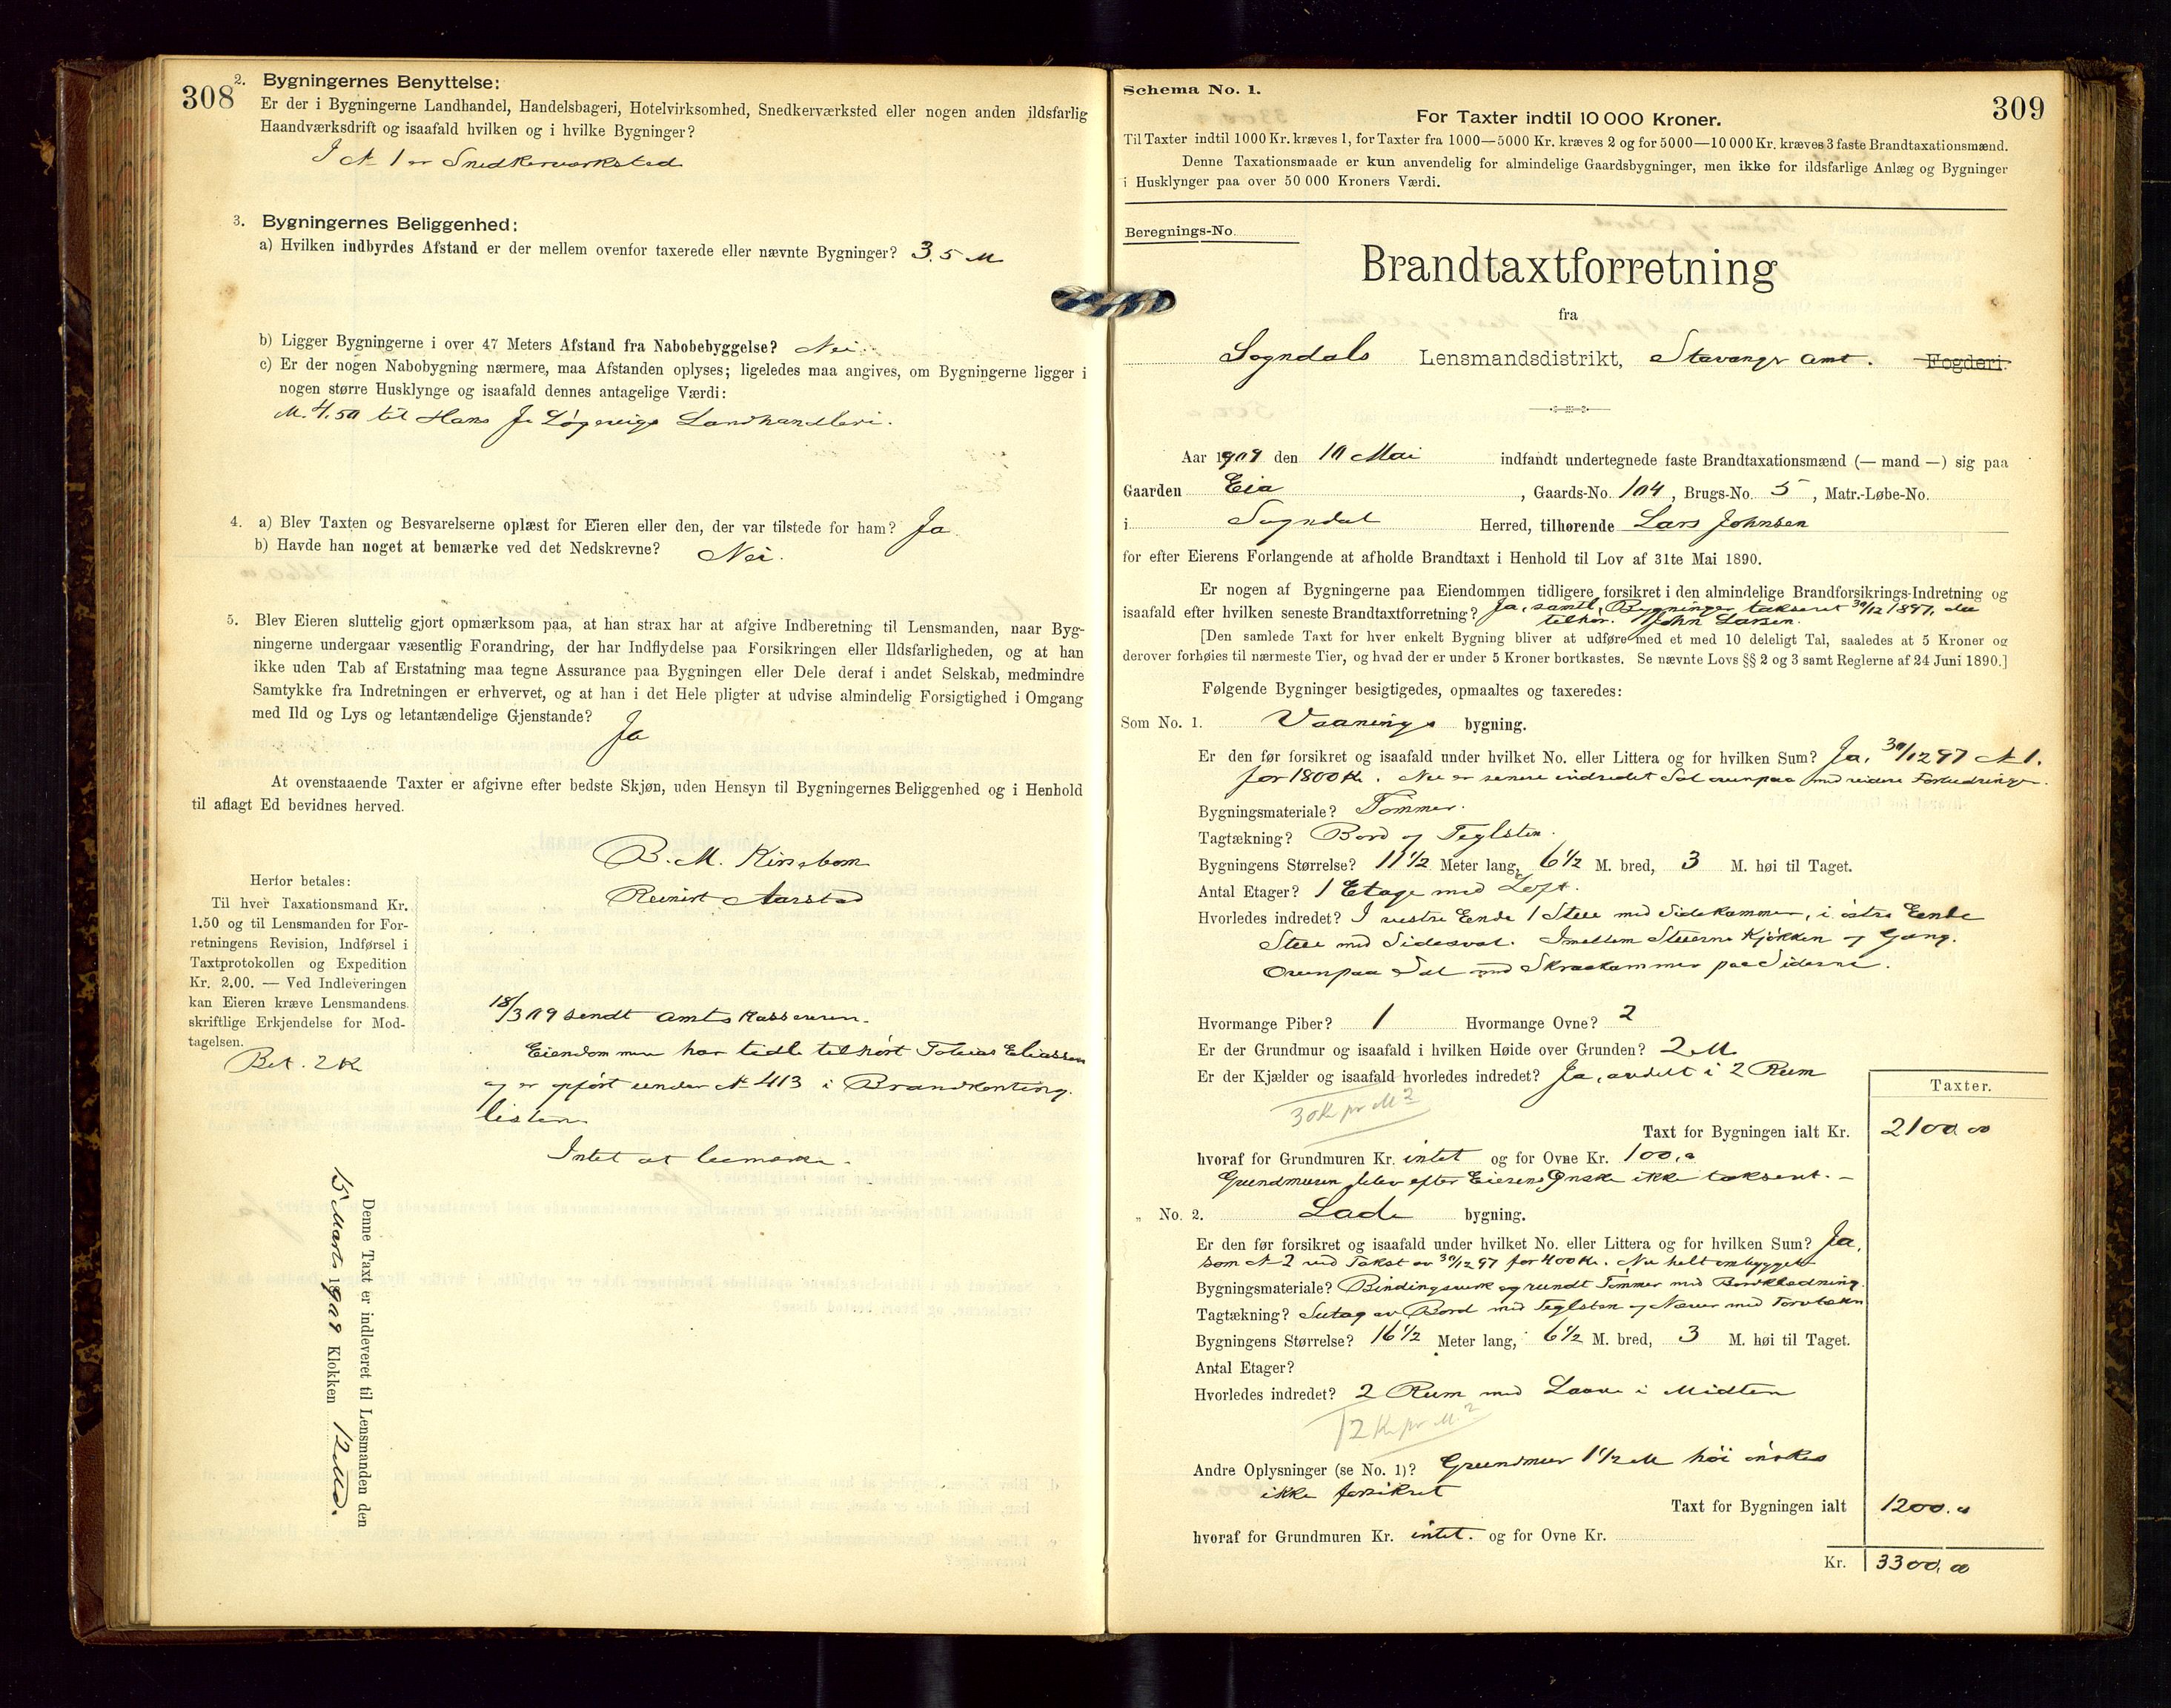 308
2. Bygningernes Benyttelse:
Er der i Bygningerne Landhandel, Handelsbageri, Hotelvirksomhed, Snedkerværksted eller nogen anden ildsfarlig
Haandværksdrift og isaafald hvilken og i hvilke Bygninger?
I № 1 er Snedkerværksted
3. Bygningernes Beliggenhed:
a) Hvilken indbyrdes Afstand er der mellem ovenfor taxerede eller nævnte Bygninger? 3.5 M
b) Ligger Bygningerne i over 47 Meters Afstand fra Nabobebyggelse? Nei.
c) Er der nogen Nabobygning nærmere, maa Afstanden oplyses; ligeledes maa angives, om Bygningerne ligger i
nogen større Husklynge og isaafald dennes antagelige Værdi:
M. 4.50 til Hans J. Løgevigs Landhandleri.
4. a) Blev Taxten og Besvarelserne oplæst for Eieren eller den, der var tilstede for ham? Ja
b) Havde han noget at bemærke ved det Nedskrevne? Nei.
5. Blev Eieren sluttelig gjort opmærksom paa, at han strax har at afgive Indberetning til Lensmanden, naar Byg-
ningerne undergaar væsentlig Forandring, der har Indflydelse paa Forsikringen eller Ildsfarligheden, og at han
ikke uden Tab af Erstatning maa tegne Assurance paa Bygningen eller Dele deraf i andet Selskab, medmindre
Samtykke fra Indretningen er erhvervet, og at han i det Hele pligter at udvise almindelig Forsigtighed i Omgang
med Ild og Lys og letantændelige Gjenstande? Ja
At ovenstaaende Taxter er afgivne efter bedste Skjøn, uden Hensyn til Bygningernes Beliggenhed og i Henhold
til aflagt Ed bevidnes herved.
B. M. Kirsebom
Reinert Aarstad
Herfor betales:
Til hver Taxationsmand Kr.
1.50 og til Lensmanden for For-
retningens Revision, Indførsel i
Taxtprotokollen og Expedition
Kr. 2.00. — Ved Indleveringen
kan Eieren kræve Lensmandens
skriftlige Erkjendelse for Mod-
tagelsen.
Bet. 2 K
18/3 09 sendt Amtskassereren.
Eiendommen har tidl. tilhørt Tobias Eliassen
og er opført under № 413 i Brandkonting.
listen
Intet at bemærke.
Denne Taxt er indleveret til Lensmanden den
15 Marts 1909 Klokken 12 Md.
309
Schema No. 1.
For Taxter indtil 10 000 Kroner.
Til Taxter indtil 1000 Kr. kræves 1, for Taxter fra 1000—5000 Kr. kræves 2 og for 5000—10 000 Kr. kræves 3 faste Brandtaxationsmænd.
Denne Taxationsmaade er kun anvendelig for almindelige Gaardsbygninger, men ikke for ildsfarlige Anlæg og Bygninger
i Husklynger paa over 50 000 Kroners Værdi.
Beregnings-No.
Brandtaxtforretning
fra
Sogndals Lensmandsdistrikt, Stavanger Amt. Fogderi.
Aar 1909 den 10 Mai indfandt undertegnede faste Brandtaxationsmænd (— mand —) sig paa
Gaarden Eia, Gaards-No. 104, Brugs-No. 5, Matr.-Løbe-No.
i Sogndal Herred, tilhørende Lars Johnsen
for efter Eierens Forlangende at afholde Brandtaxt i Henhold til Lov af 31te Mai 1890.
Er nogen af Bygningerne paa Eiendommen tidligere forsikret i den almindelige Brandforsikrings-Indretning og
isaafald efter hvilken seneste Brandtaxtforretning? Ja, samtl. Bygninger takseret 30/12 1897, da
tilhør. John Larsen.
[Den samlede Taxt for hver enkelt Bygning bliver at udføre med et med 10 deleligt Tal, saaledes at 5 Kroner og
derover forhøies til nærmeste Tier, og hvad der er under 5 Kroner bortkastes. Se nævnte Lovs §§ 2 og 3 samt Reglerne af 24 Juni 1890.]
Følgende Bygninger besigtigedes, opmaaltes og taxeredes:
Som No. 1. Vaanings bygning.
Er den før forsikret og isaafald under hvilket No. eller Littera og for hvilken Sum? Ja, 30/12 97 № 1.
for 1800 Kr. Nu er senere indredet Sal ovenpaa med videre Forbedringer.
Bygningsmateriale? Tømmer.
Tagtækning? Bord og Teglsten.
Bygningens Størrelse? 11 1/2 Meter lang, 6 1/2 M. bred, 3 M. høi til Taget.
Antal Etager? 1 Etage med Loft.
Hvorledes indredet? I vestre Ende 1 Stue med Sidekammer, i østre Ende
Stue med Sidesval. Imellem Stuerne Kjøkken og Gang.
Ovenpaa Sal med Skraakammer paa Siderne.
Hvormange Piber? 1 Hvormange Ovne? 2
Er der Grundmur og isaafald i hvilken Høide over Grunden? 2 M
Er der Kjælder og isaafald hvorledes indredet? Ja, avdelt i 2 Rum
30 Kr pr M2
Taxter.
Taxt for Bygningen ialt Kr. 2100.00
hvoraf for Grundmuren Kr. intet og for Ovne Kr. 100.00
Grundmuren blev efter Eierens Ønske ikke takseret. —
„ No. 2. Lade bygning.
Er den før forsikret og isaafald under hvilket No. eller Littera og for hvilken Sum? Ja,
som № 2 ved Takst av 30/12 97 for 400 Kr. Nu helt ombygget
Bygningsmateriale? Bindingsverk og rundt Tømmer med Bordklædning.
Tagtækning? Sutag av Bord med Teglsten og Næver med Torvtækn
Bygningens Størrelse? 16 1/2 Meter lang, 6 1/2 M. bred, 3 M. høi til Taget.
Antal Etager?
Hvorledes indredet? 2 Rum med Laave i Midten
12 Kr pr M.2
Andre Oplysninger (se No. 1)? Grundmur 1 1/2 M høi ønskes
ikke forsikret
Taxt for Bygningen ialt 1200.00
hvoraf for Grundmuren Kr. intet. og for Ovne Kr.
Kr. 3300.00